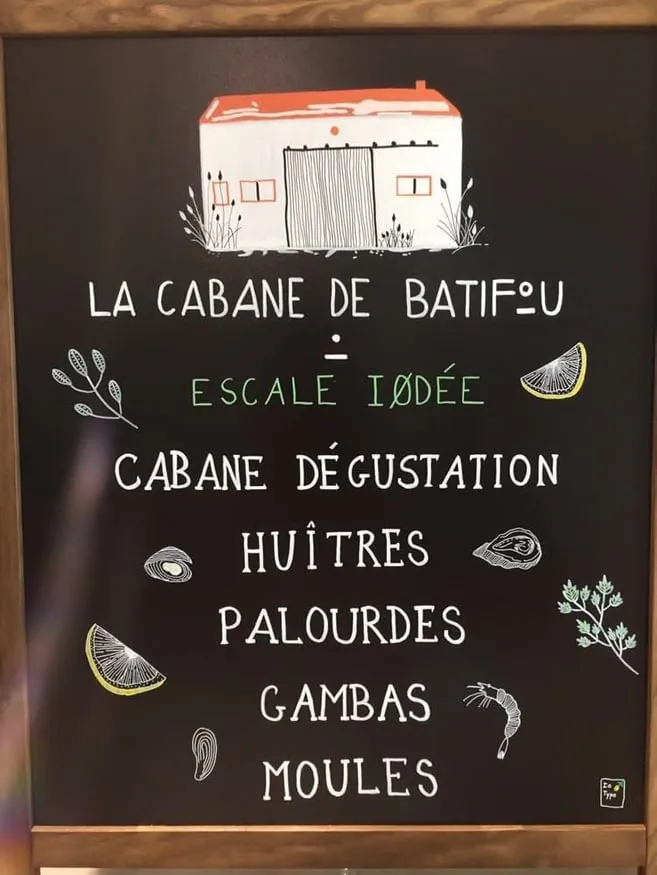 LA CABANE DE BATIFOU
ESCALE IØDÉE
CABANE DÉGUSTATION
HUÎTRES
PALOURDES
GAMBAS
MOULES